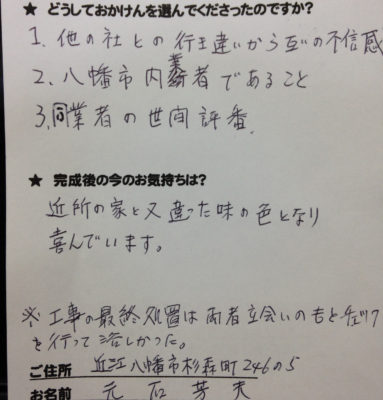 ★ どうしておかけんを選んでくださったのですか?
1. 他の社との行き違いから互いの不信感
2. 八幡市内業者であること
3. 同業者の世間評番
★ 完成後の今のお気持ちは?
近所の家と又違った味の色となり
喜んでいます。
※工事の最終処置は両者立会いのもとチェック
を行って洛しかった。
ご住所 近江八幡市杉森町246の5
お名前 元石芳夫